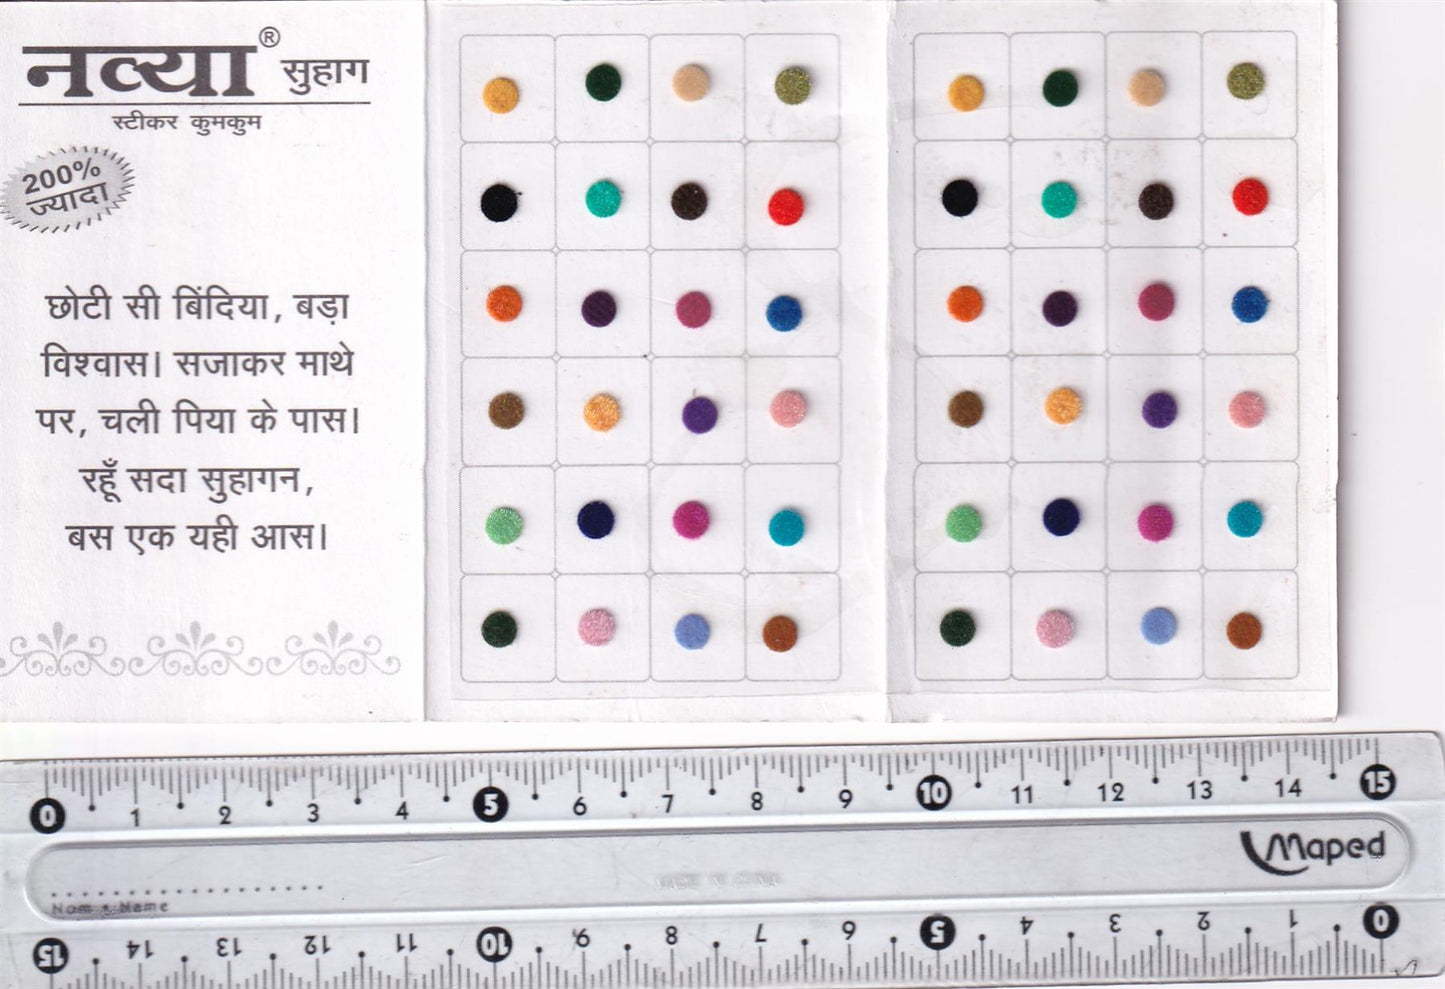 नव्या® सुहाग
स्टीकर कुमकुम
200%
ज्यादा
छोटी सी बिंदिया, बड़ा
विश्वास। सजाकर माथे
पर, चली पिया के पास।
रहूँ सदा सुहागन,
बस एक यही आस।
0 1 2 3 4 5 6 7 8 9 10 11 12 13 14 15
Maped
MADE IN CHINA
Nom • Name
15 14 13 12 11 10 9 8 7 6 5 4 3 2 1 0